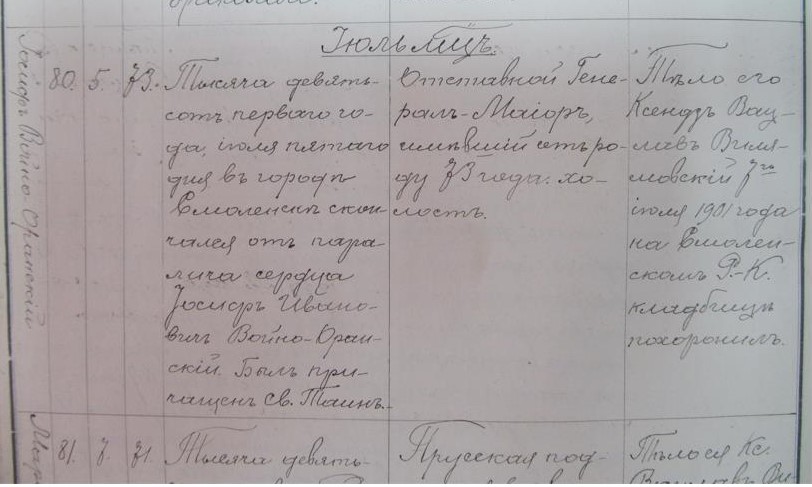 Іюль мѣц.
Іосифъ Войно-Оранскій
80. 5. 73.
Тысяча девять-
сотъ перваго го-
да, іюля пятаго
дня въ городѣ
Смоленскѣ скон-
чался отъ пара-
лича сердца
Іосифъ Ивано-
вичъ Войно-Оран-
скій. Былъ при-
чащенъ Св. Таинъ.
Отставной Гене-
ралъ-Маіоръ,
имѣвшій отъ ро-
ду 73 года. хо-
лостъ.
Тѣло его
Ксендзъ Вац-
лавъ Виля-
мовскій 7го
іюля 1901 года
на Смолен-
скомъ Р.-К.
кладбищѣ
похоронилъ.
81. 7. 71.
Тысяча девять-
Прусская под-
Тѣло ея Кс.